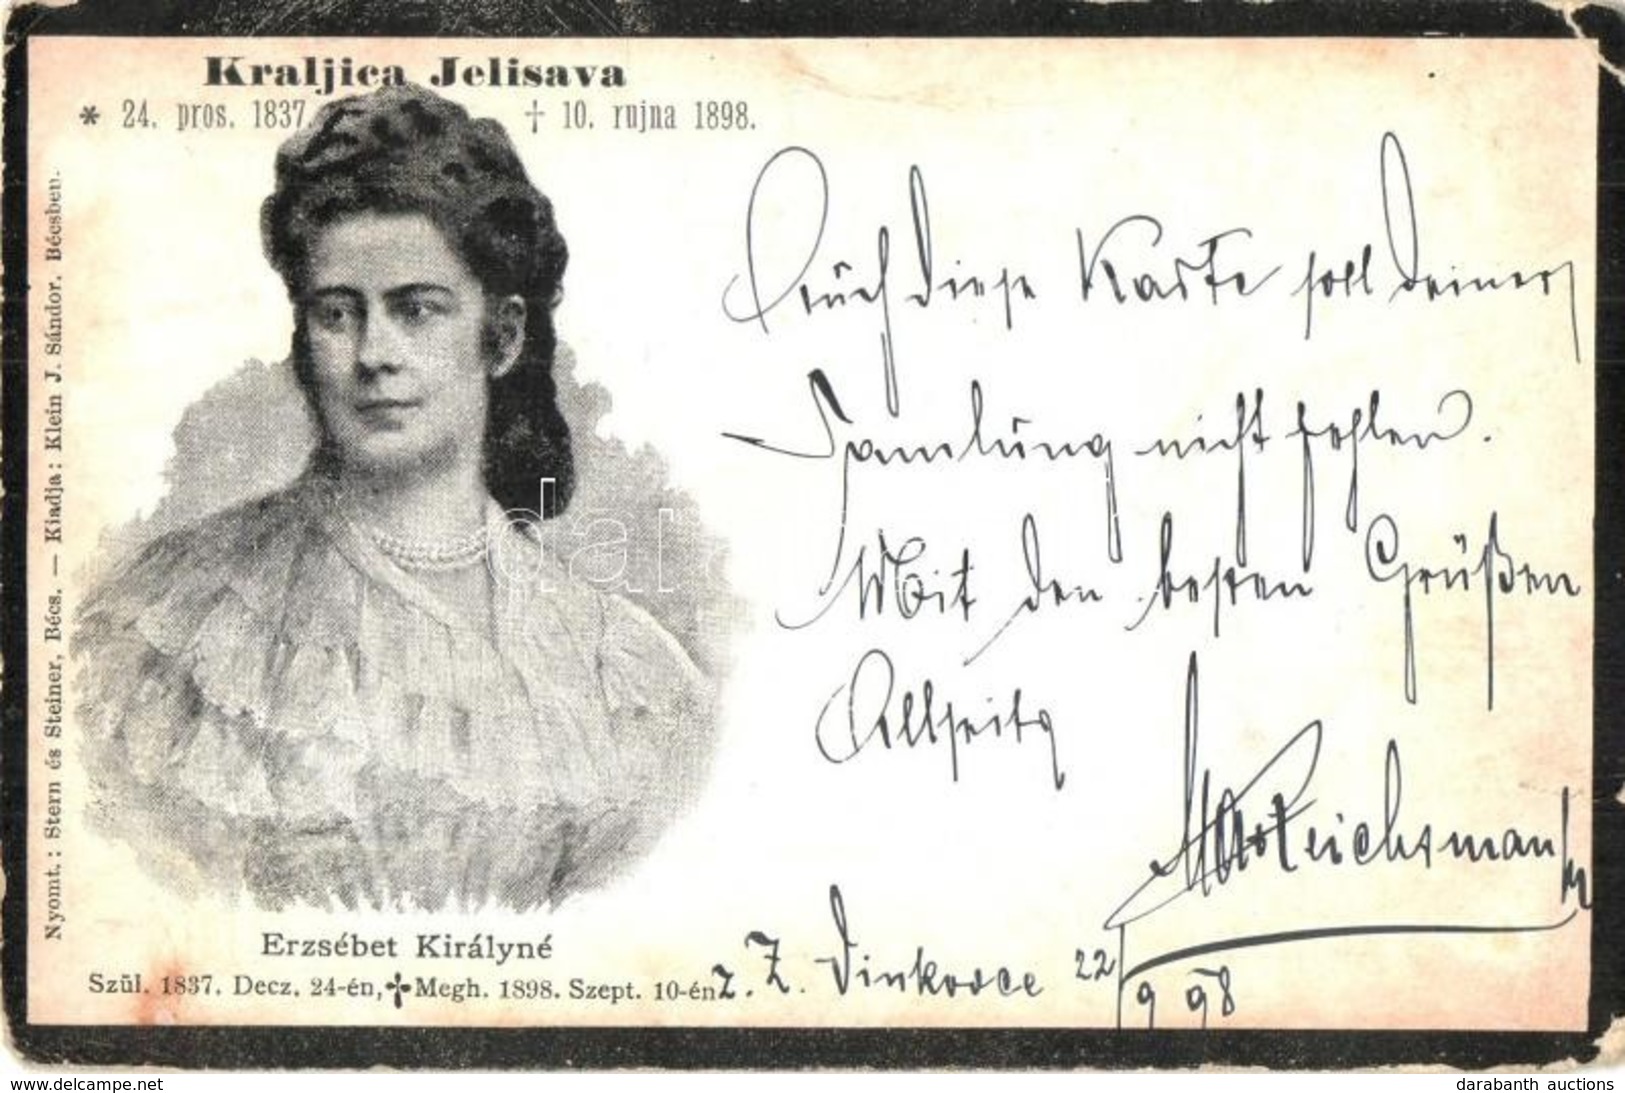 Kraljica Jelisava
* 24. pros. 1837. † 10. rujna 1898.
Nyomt.: Stern és Steiner, Bécs. — Kiadja: Klein J. Sándor. Bécsben.
Auch diese Karte soll deiner
Samlung nicht fehlen.
Mit den besten Grüßen
Allseits
Reichsmann
Z. Z. Vinkovce 22/9 98
Erzsébet Királyné
Szül. 1837. Decz. 24-én, † Megh. 1898. Szept. 10-én
dara
www.delcampe.net
darabanth auctions